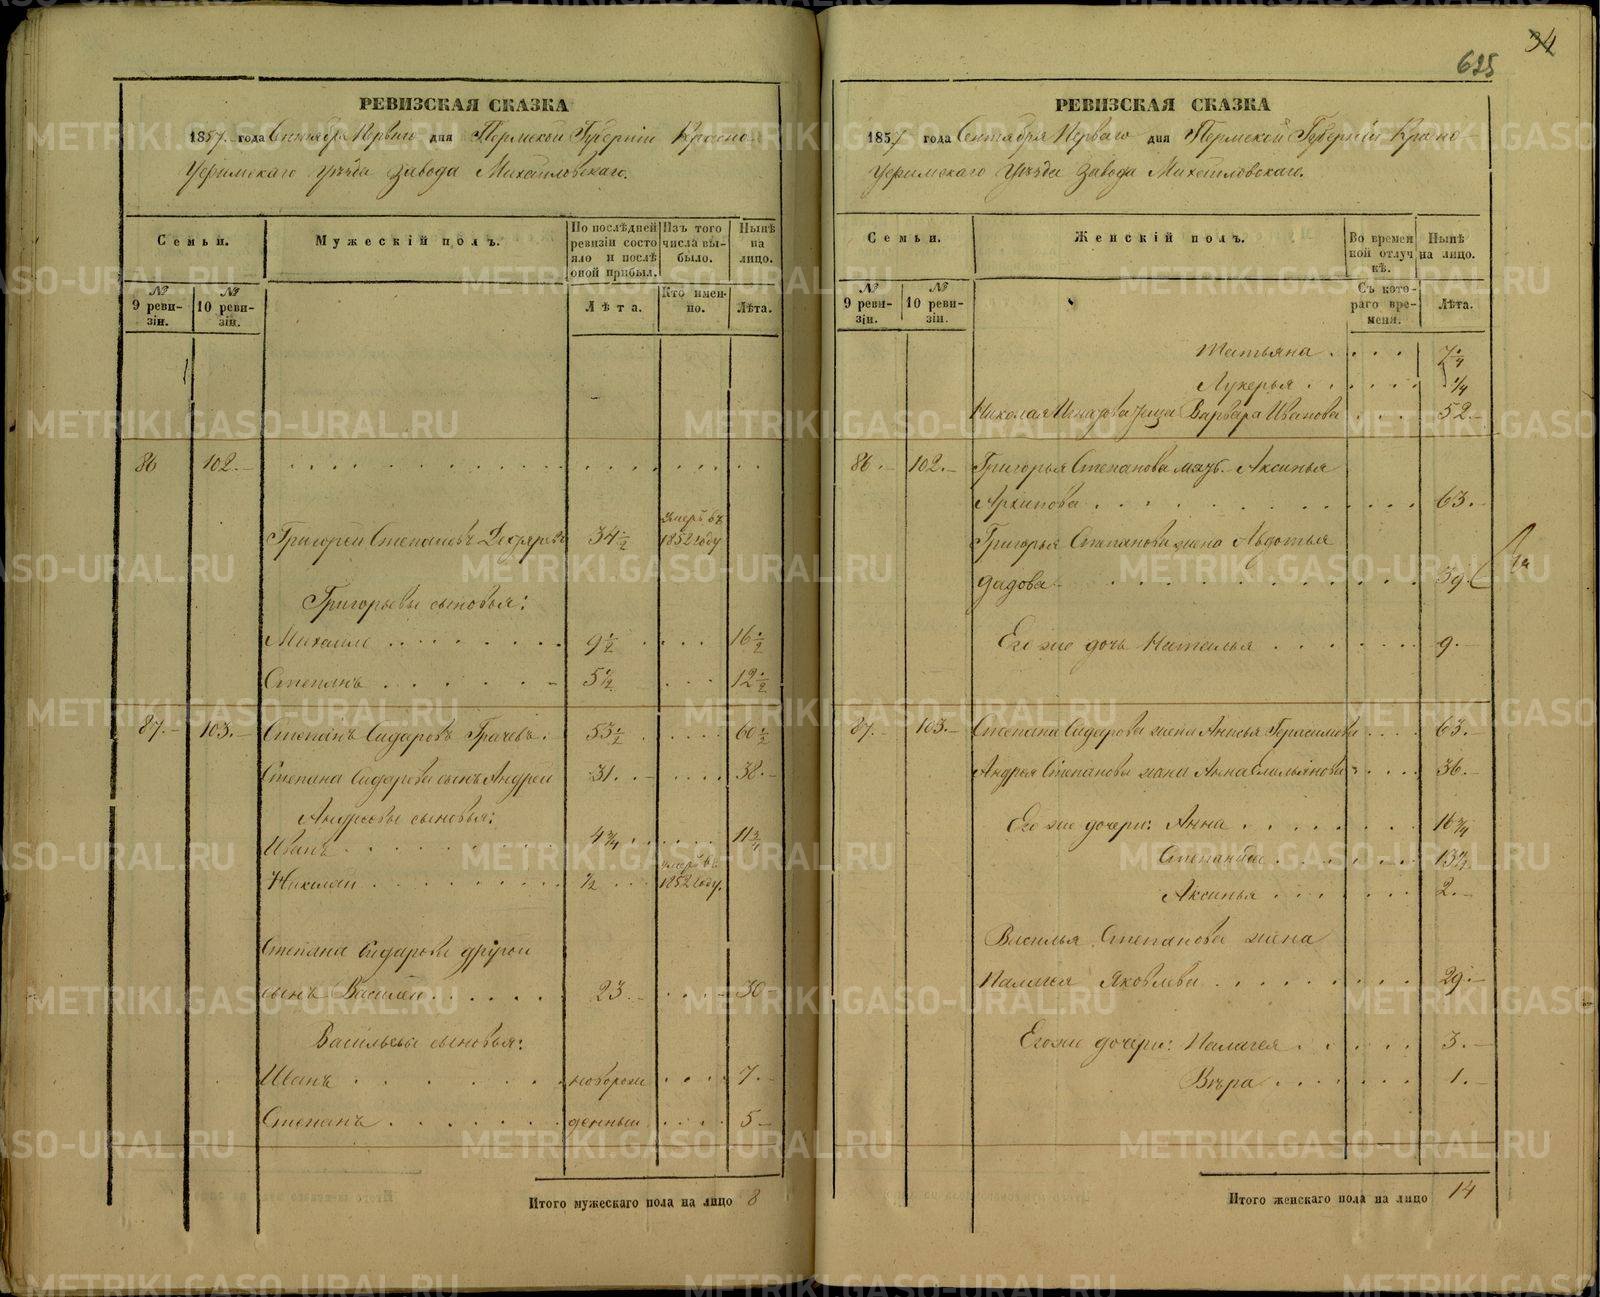 34
625
РЕВИЗСКАЯ СКАЗКА
1857 года Сентября Перваго дня Пермской Губерніи Красно-
Уфимскаго Уѣзда завода Михайловскаго.
Семьи.
Мужескій полъ.
По послѣдней ревизіи состояло и послѣ оной прибыл.
Изъ того числа выбыло.
Нынѣ на лицо.
№ 9 ревизіи.
№ 10 ревизіи.
Лѣта.
Кто именно.
Лѣта.
86 102.
Григорей Степановъ 34 1/2 умеръ въ 1852 году
Григорьевы сыновья:
Михайло 9 1/2 16 1/2
Степанъ 5 1/2 12 1/2
87. 103. Степанъ Сидаровъ Грачевъ. 53 1/2 60 1/2
Степана Сидарова сынъ Андрей 31. 38.
Андреевы сыновья:
Иванъ 4 3/4 11 3/4
Николай 1/2 умеръ въ 1852 году.
Степана Сидарова другой
сынъ Василей 23 30
Васильевы сыновья:
Иванъ новорож 7.
Степанъ денныи 5
Итого мужескаго пола на лицо 8
РЕВИЗСКАЯ СКАЗКА
1857 года Сентября Перваго дня Пермской Губерніи Красно
Уфимскаго Уѣзда завода Михайловскаго.
Семьи.
Женскій полъ.
Во временной отлучкѣ.
Нынѣ на лицо.
№ 9 ревизіи.
№ 10 ревизіи.
Съ котораго времени.
Лѣта.
Татьяна
Лукерья 1/4
Варвара Иванова 52.
86. 102. Григорья Степанова мать Аксинья
Архипова 63.
Григорья Степанова жена Авдотья
39
Его же дочь Наталья 9.
87. 103. Степана Сидарова жена Анисья Герасимова 63.
Андрея Степанова жена Анна Емельянова 36.
Его же дочери: Анна 16 3/4
Степанида
Аксинья 2.
Василья Степанова жена
Палагея Яковлева 29.
Его же дочери: Палагея 3.
Вѣра 1.
Итого женскаго пола на лицо 14
METRIKI.GASO-URAL.RU